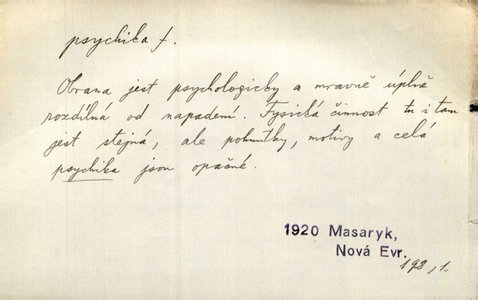 psychika f.
Obrana jest psychologicky a mravně úplně
rozdílná od napadení. Fysická činnost tu i tam
jest stejná, ale pohnutky, motivy a celá
psychika jsou opačné.
1920 Masaryk,
Nová Evr.
193, 1.